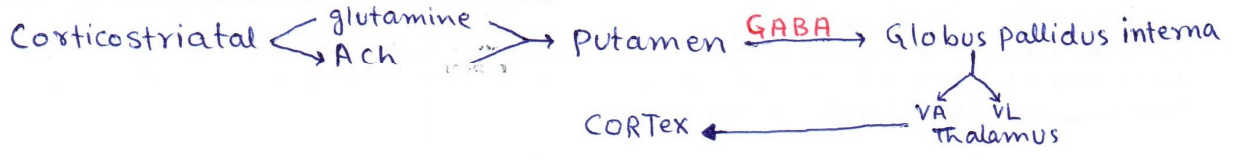 Corticostriatal glutamine Ach Putamen GABA Globus pallidus interna
VA VL
Thalamus
CORTex